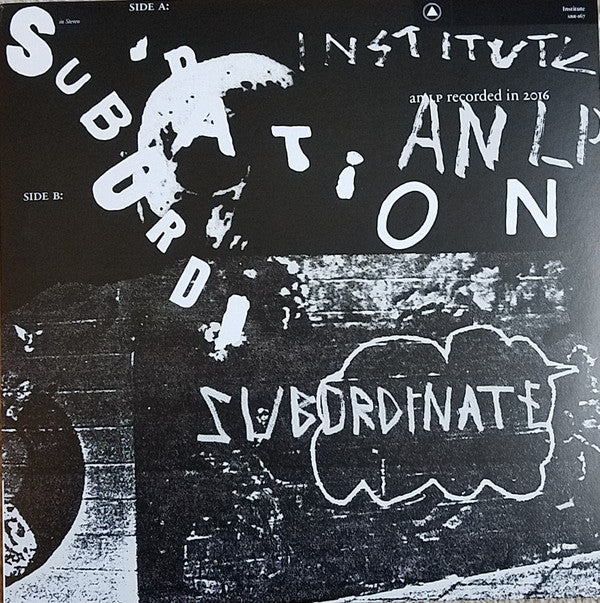 SIDE A:
in Stereo
Institute
SBR-167
SUBORDI
NATION
INSTITUTE
an LP recorded in 2016
AN LP
SIDE B:
SUBORDINATE